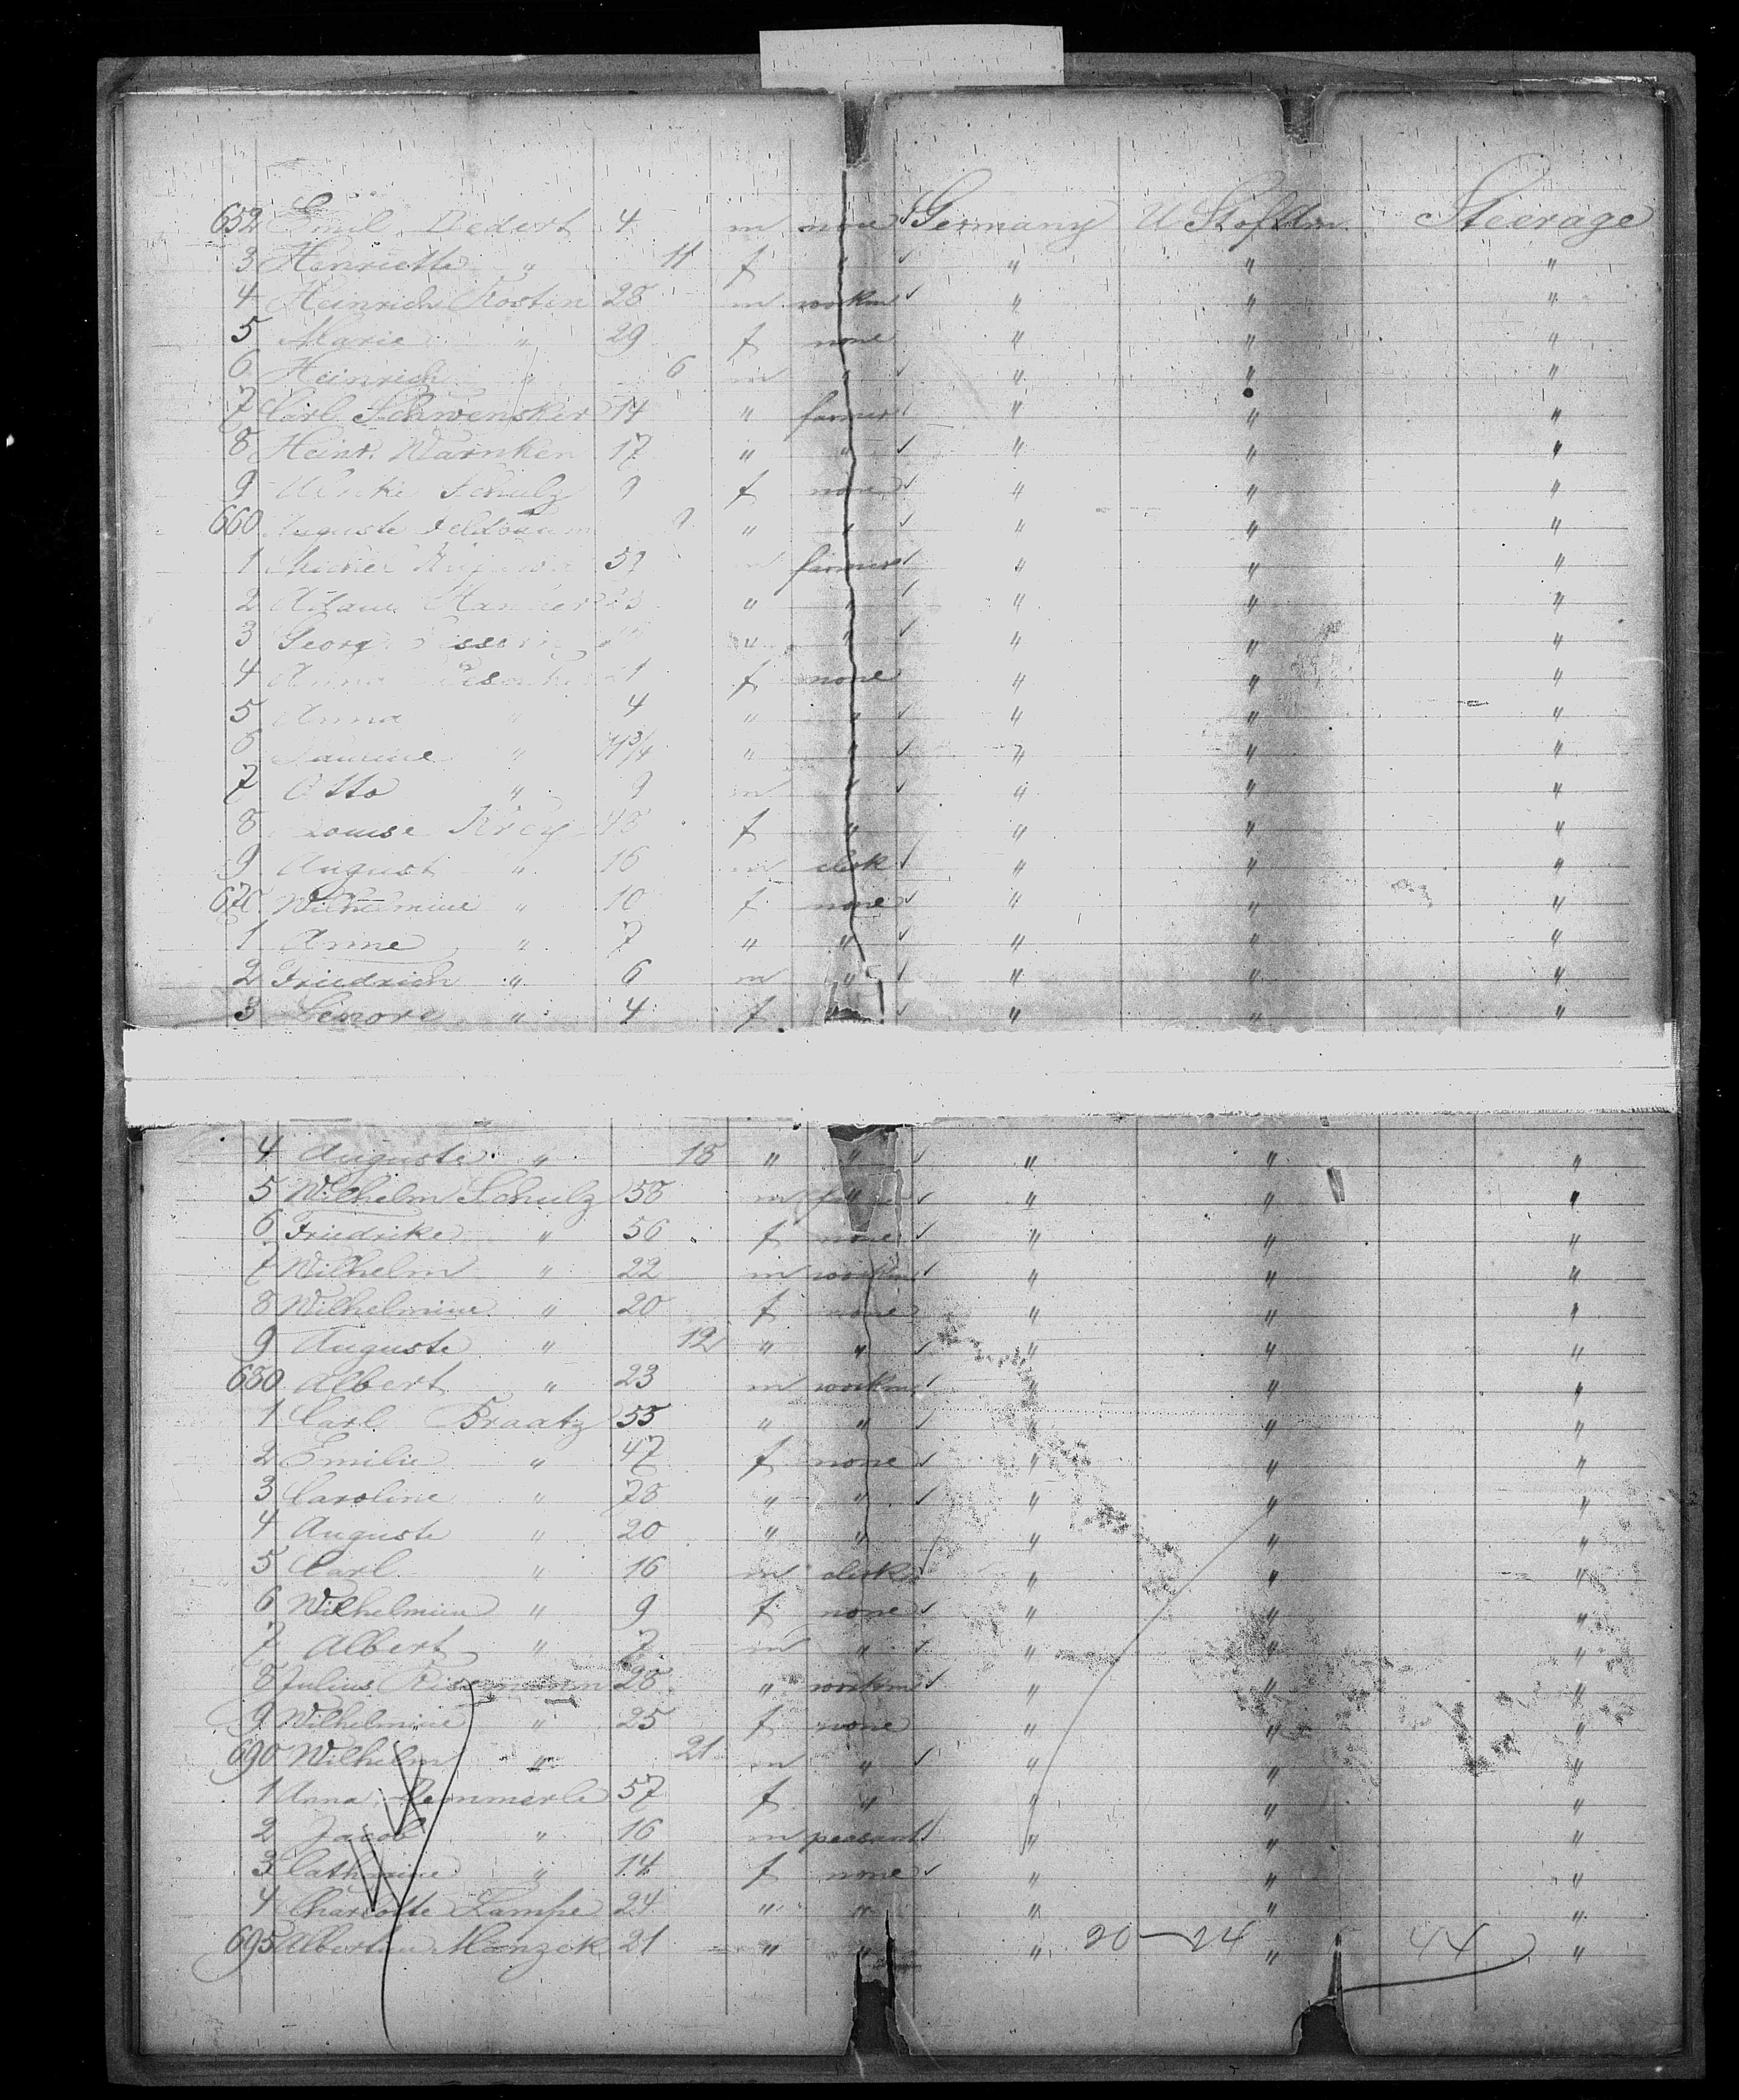 652 Emil Dedert 4 m none Germany U St of Am. Steerage
3 Henriette " 11 f " " " "
4 Heinrich Kosten 28 m workm " " "
5 Marie " 29 f none " " "
6 Heinrich " 6 m " " " "
7 Carl Schwensker 14 " farmer " " "
8 Heinr. Warnken 17 " " " " "
9 Schulz 9 f none " " "
660 Auguste Feldbaum 9 " " " " "
1 farmer " " "
2 Adam " " " " "
3 Georg " " " " "
4 Anna f none " " "
5 Anna " 4 " " " " "
6 " 11 3/4 " " " " "
7 Otto " 9 m " " " "
8 Louise Krey 48 f " " " "
9 August " 16 m clerk " " "
670 Wilhelmine " 10 f none " " "
1 Anne " 7 " " " " "
2 Friedrich " 6 m " " " "
3 Lenore " 4 f " " "
4 Auguste " 18 " " " " "
5 Wilhelm Schulz 58 m " " "
6 Friedrike " 56 f none " " "
7 Wilhelm " 22 m workm " " "
8 Wilhelmine " 20 f none " " "
9 Auguste " 12 " " " " "
680 Albert " 23 m workm " " "
1 Carl Braatz 55 " " " " "
2 Emilie " 47 f none " " "
3 Caroline " 78 " " " " "
4 Auguste " 20 " " " " "
5 Carl " 16 m clerk " " "
6 Wilhelmine " 9 f none " " "
7 Albert " 7 m " " " "
8 Julius 28 " workm " " "
9 Wilhelmine " 25 f none " " "
690 Wilhelm " 21 m " " " "
1 Anna 57 f " " " "
2 Jacob " 16 m peasant " " "
3 Cathrine " 14 f none " " "
4 Charlotte Lampe 24 " " " " "
695 Albertine Manzek 21 " " " 20—24 " 44 "